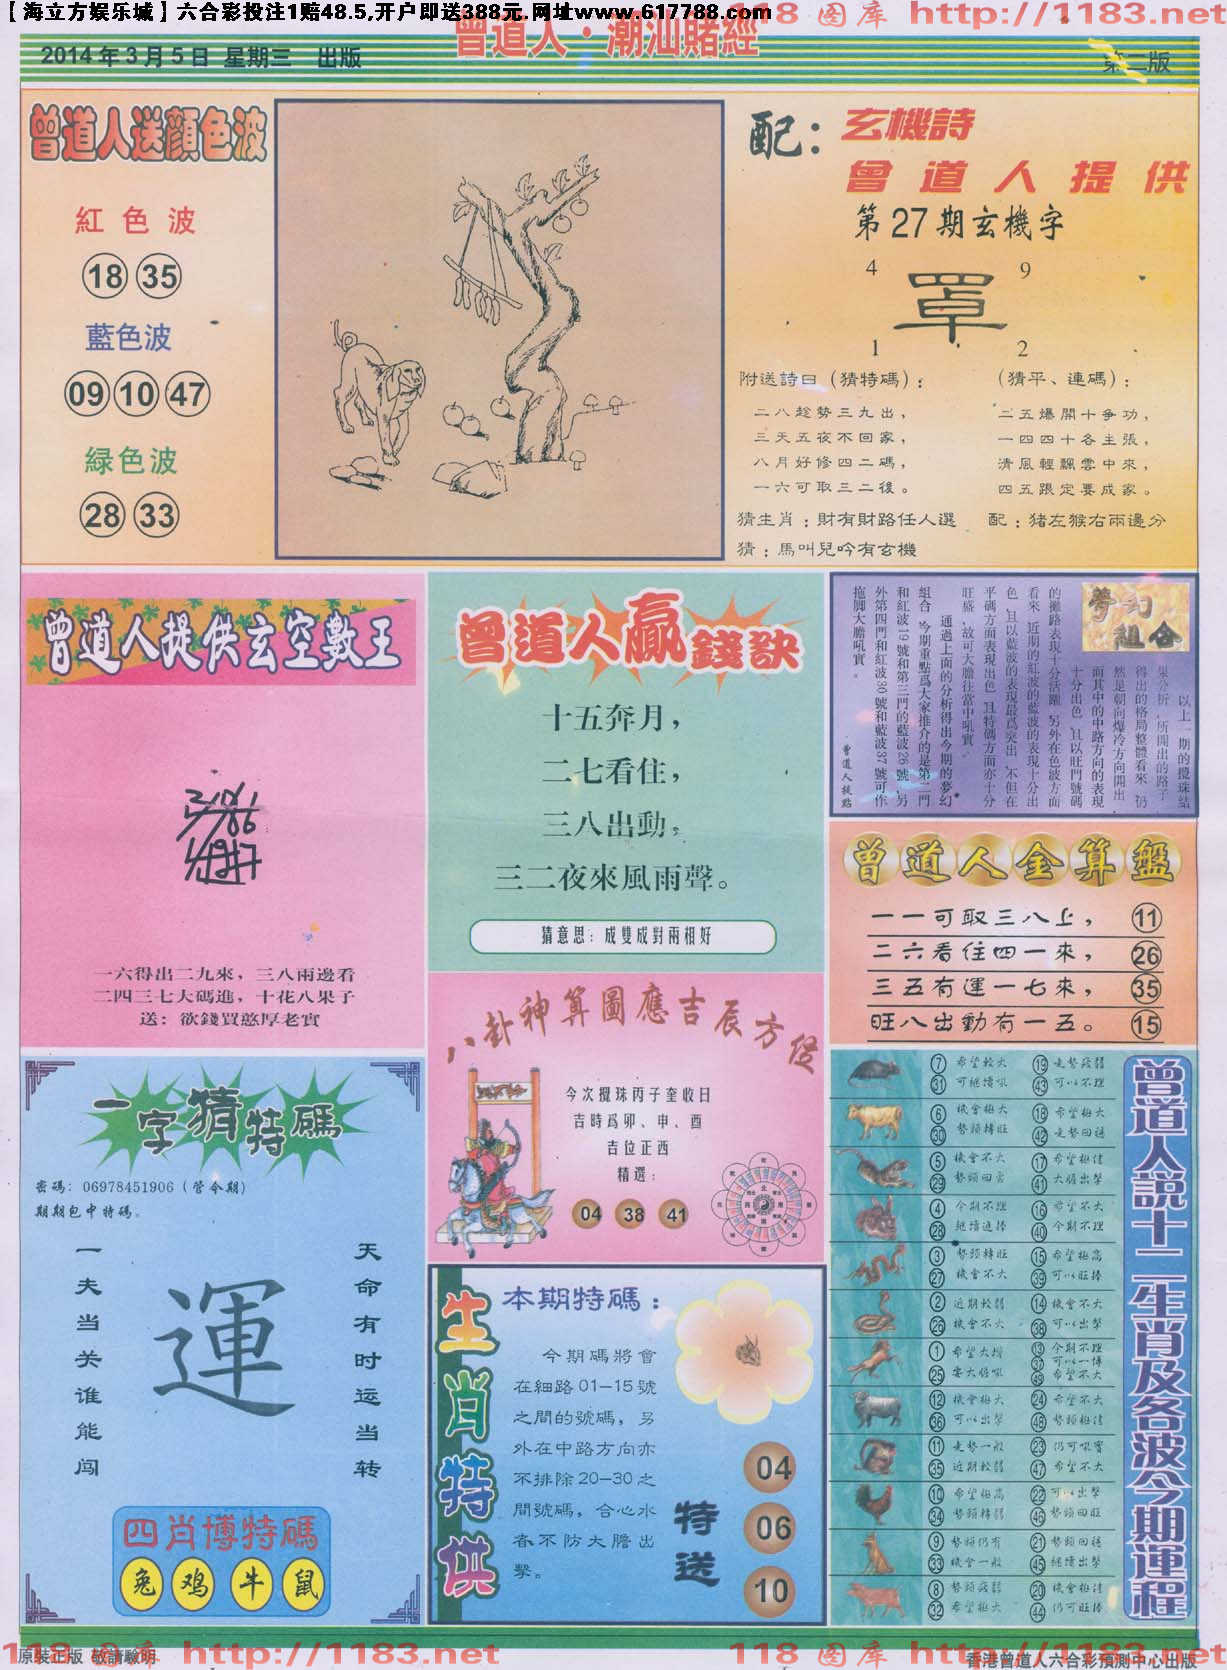 【海立方娱乐城】六合彩投注1赔48.5,开户即送388元.网址www.617788.com
118 图库 http://1183.net
曾道人·潮汕賭經
2014年3月5日 星期三 出版
第二版
曾道人送顏色波
紅色波
18 35
藍色波
09 10 47
緑色波
28 33
配：玄機詩
曾道人提供
第27期玄機字
4 9
罩
1 2
附送詩曰（猜特碼）：
二八趁勢三九出，
三天五夜不回家，
八月好修四二碼，
一六可取三二後。
（猜平、連碼）：
二五爆開十争功，
一四四十各主張，
清風輕飄雲中來，
四五跟定要成家。
猜生肖：財有財路任人選
配：猪左猴右兩邊分
猜：馬叫兒吟有玄機
曾道人提供玄空數王
一六得出二九來，三八兩邊看
二四三七大碼進，十花八果子
送：欲錢買憨厚老實
曾道人贏錢訣
十五奔月，
二七看住，
三八出動，
三二夜來風雨聲。
猜意思：成雙成對兩相好
夢幻組合
以上一期的攪珠結
果分析，所開出的路子
得出的格局整體看來，仍
然是朝向爆冷方向開出
而其中的中路方向的表現
十分出色，且以旺門號碼
的攤路表現十分活躍，另外在色波方面
看來，近期的紅波的藍波的表現十分出
色，且以藍波的表現最爲突出，不但在
平碼方面表現出色，且特碼方面亦十分
旺盛，故可大膽往當中吼實。
通過上面的分析得出今期的夢幻
組合，今期重點爲大家推介的是第二門
和紅波19號和第三門的藍波26號，另
外第四門和紅波30號和藍波37號可作
拖脚大膽吼實。
曾道人提點
曾道人金算盤
一一可取三八上， 11
二六看住四一來， 26
三五有運一七來， 35
旺八出動有一五。 15
八卦神算圖應吉辰方位
今次攪珠丙子奎收日
吉時爲卯、申、酉
吉位正西
精選：
04 38 41
一字猜特碼
密碼：06978451906（管今期）
期期包中特碼。
一夫当关谁能闯
運
天命有时运当转
四肖博特碼
兔 鸡 牛 鼠
生肖特供
本期特碼：
今期碼將會
在細路01—15號
之間的號碼，另
外在中路方向亦
不排除20—30之
間號碼，合心水
者不防大膽出
擊。
特送
04
06
10
曾道人說十二生肖及各波今期運程
7 希望較大 19 走勢疲弱
31 可繼續吼 43 可以不理
6 機會極大 18 希望極大
30 勢頭轉旺 42 走勢回穩
5 機會不大 17 希望極佳
29 勢頭回落 41 大膽出擊
4 今期不理 16 希望不大
28 繼續追捧 40 今期不理
3 勢頭轉旺 15 希望極高
27 機會不大 39 可以旺捧
2 近期較弱 14 機會不大
26 機會不大 38 可以出擊
1 希望大增 13 今期不理
37 可以一博
25 49 希望不大
12 機會極大 24 希望不大
36 可以出擊 48 勢頭極佳
11 走勢一般 23 仍可吼實
35 近期較弱 47 希望不大
10 希望極高 22 可以出擊
34 勢頭轉弱 46 勢頭回旺
9 勢頭仍有 21 勢頭回穩
33 機會一般 45 繼續出擊
8 勢頭疲弱 20 機會極佳
32 希望極大 44 仍可旺捧
118 图库 http://1183.net
118 图库 http://1183.net
原裝正版 敬請驗明
香港曾道人六合彩預測中心出版